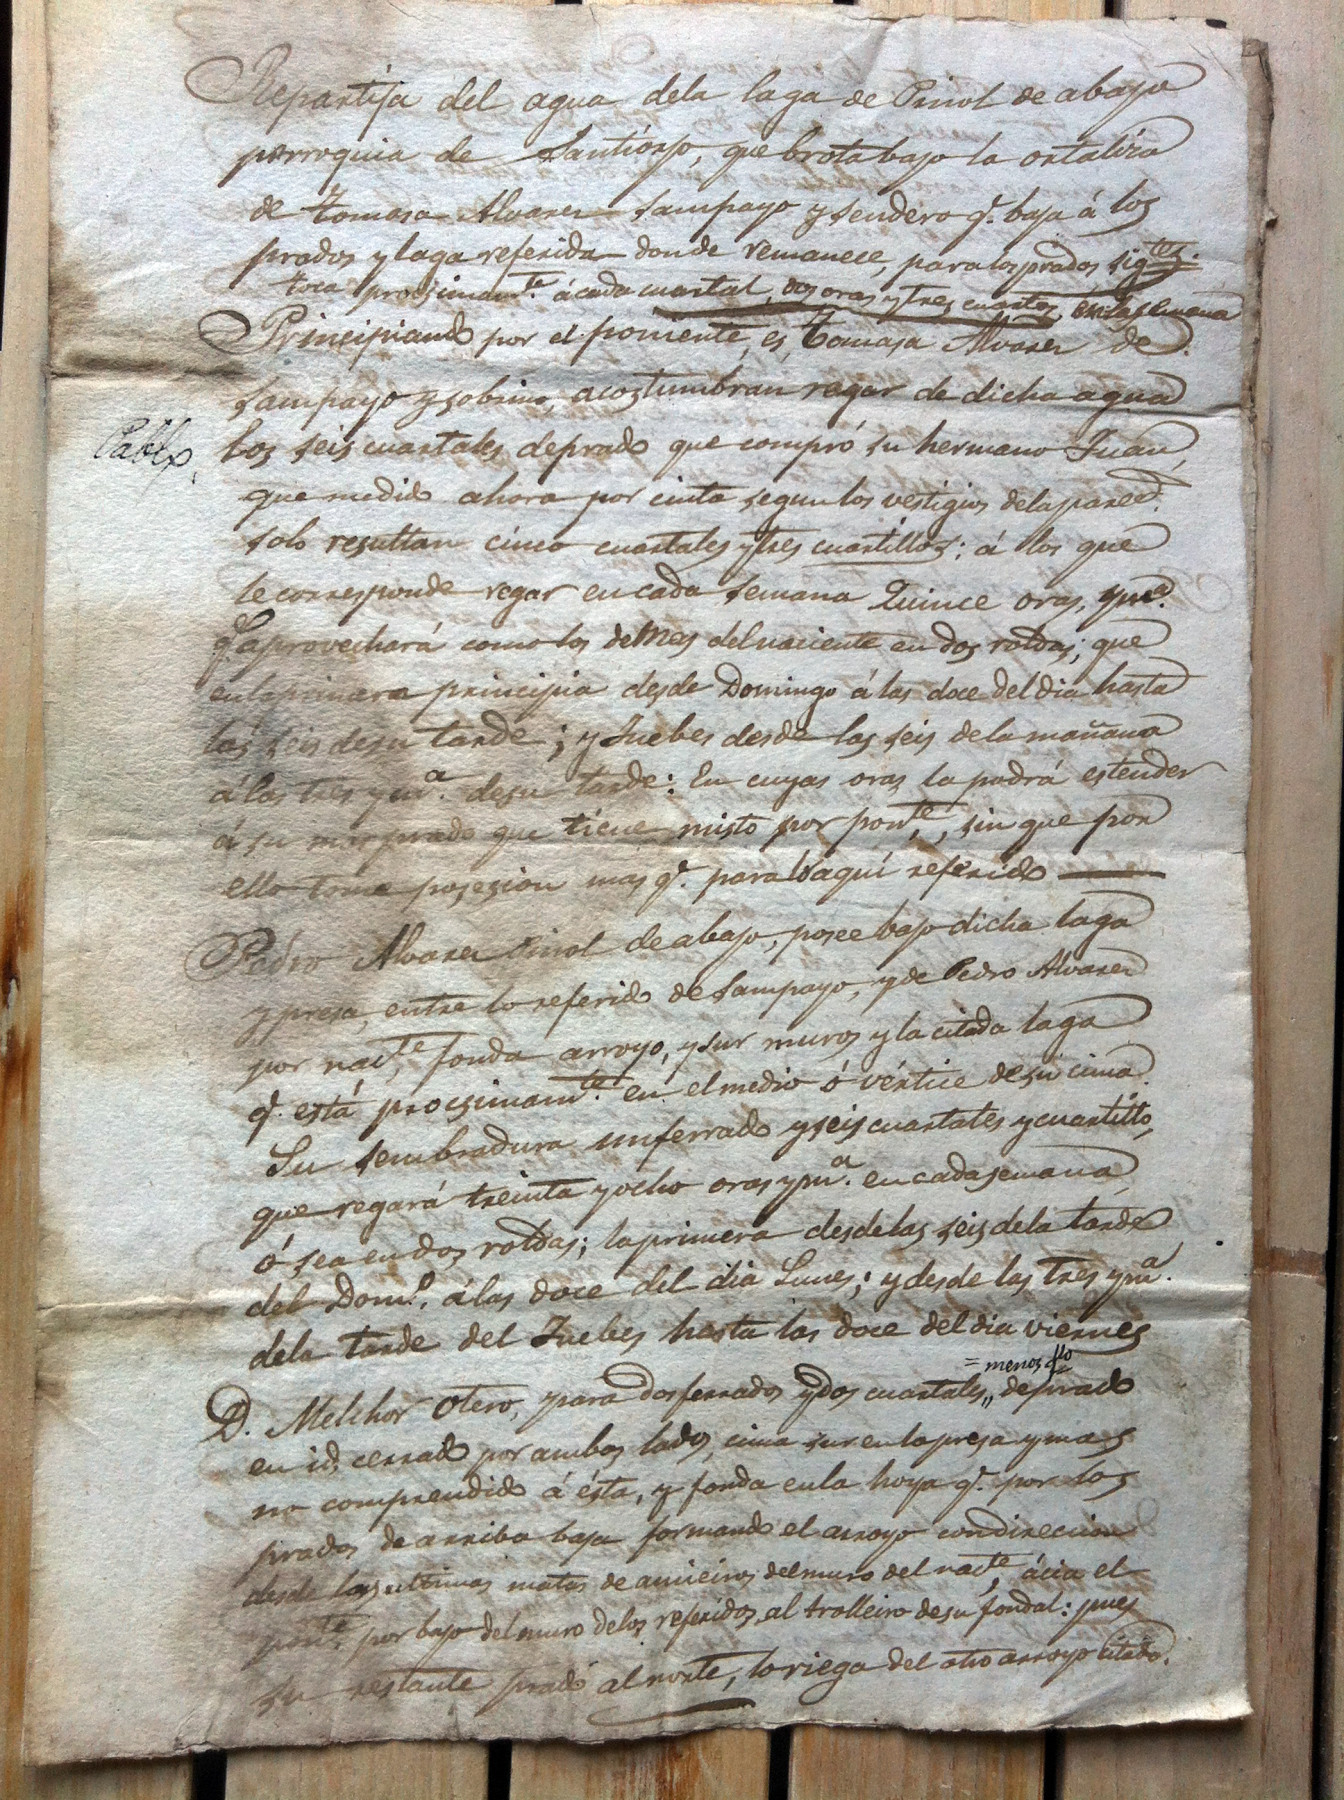 Repartija del agua dela laga de Piñol de abajo
perroquia de Santiorjo, que brota bajo la ortaliza
de Tomasa Alvarez Sampayo y sendero q.e baja á los
prados y laga referida donde remanece, para los prados sig.tes
toca procsimam.te á cada cuartal, dos oras y tres cuartos, en la semana
Principiando por el poniente, es, Tomasa Alvarez de
Sampayo y sobino, acostumbran regar de dicha agua
Pablo
los seis cuartales de prado que compró su hermano Juan,
que medido ahora por cinta segun los vestigios dela pared.
solo resultan cinco cuartales y tres cuartillos: á los que
le corresponde regar en cada semana Quince oras, y m.a
q.e aprovechará como los demas del naciente en dos roldas; que
en la primera principia desde Domingo á las doce del dia hasta
las seis de su tarde; y Juebes desde las seis de la mañana
á las tres y m.a de su tarde: En cuyas oras la podrá estender
á su mas prado que tiene misto por pon.te, sin que por
ello tome posesion mas q.e para lo aquí referido
Pedro Alvarez Piñol de abajo, posee bajo dicha laga
y presa, entre lo referido de Sampayo, y de Pedro Alvarez
por nac.te, fonda arroyo, y sur muros y la citada laga
q.e está procsimam.te en el medio ó vértice de su cima.
Su sembradura un ferrado y seis cuartales y cuartillo,
que regará treinta y ocho oras y m.a en cada semana
ó sea en dos roldas; la primera desde las seis de la tarde
del Dom.o, á las doce del dia Lunes; y desde las tres y m.a
dela tarde del Juebes hasta las doce del dia viernes
= menos
D. Melchor Otero, y para dos ferrados y dos cuartales,, de prado
en id. cerrado por ambos lados, cima sur en la presa y mas
no comprendido á ésta, y fonda en la hoya q.e por los
prados de arriba baja formando el arroyo con direccion
desde las ultimas matas de amieiros del muro del nac.te, ácia el
pon.te por bajo del muro de los referidos, al trolleiro de su fondal: pues
su restante prado al norte, lo riega del otro arroyo citado.